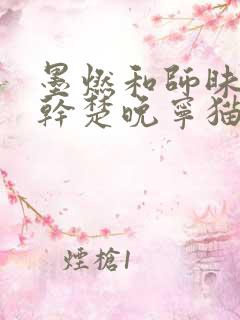 墨燃和師昧
幹楚晚寧猫
煙槍1